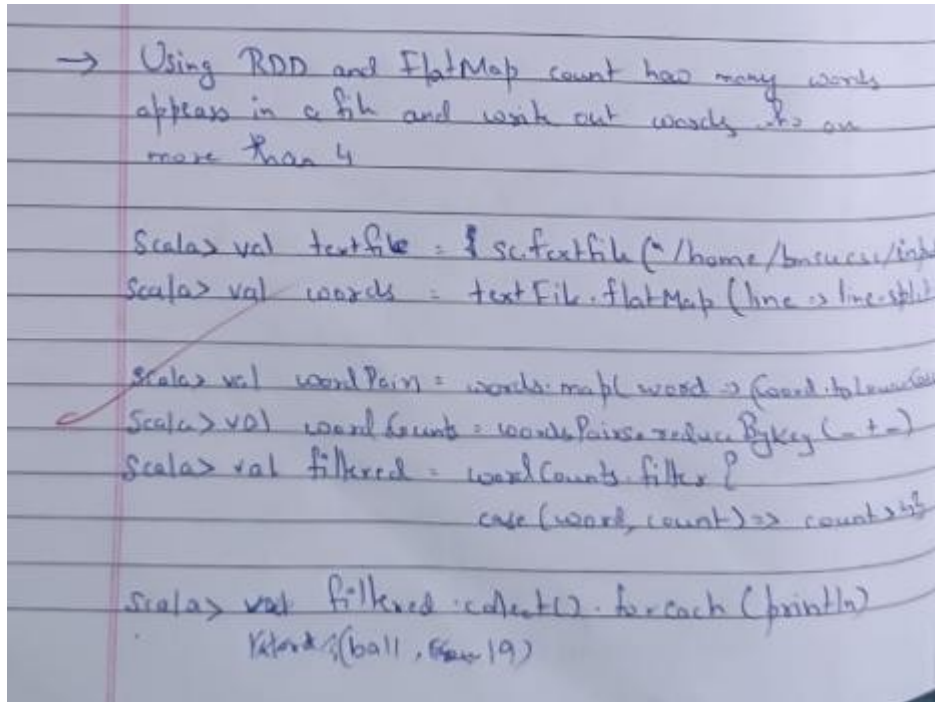 → Using RDD and FlatMap count how many words
appears in a file and write out words
more than 4
Scala> val textfile = sc.textfile("/home/bmsucse/inp
Scala> val words = textFile.flatMap(line => line.split
Scala> val wordPairs = words.map(word => (word.toLowerCas
Scala> val wordCounts = wordsPairs.reduceByKey(_+_)
Scala> val filtered = wordCounts.filter {
case (word, count) => count > 4}
Scala> val filtered.collect().foreach(println)
(ball, 19)